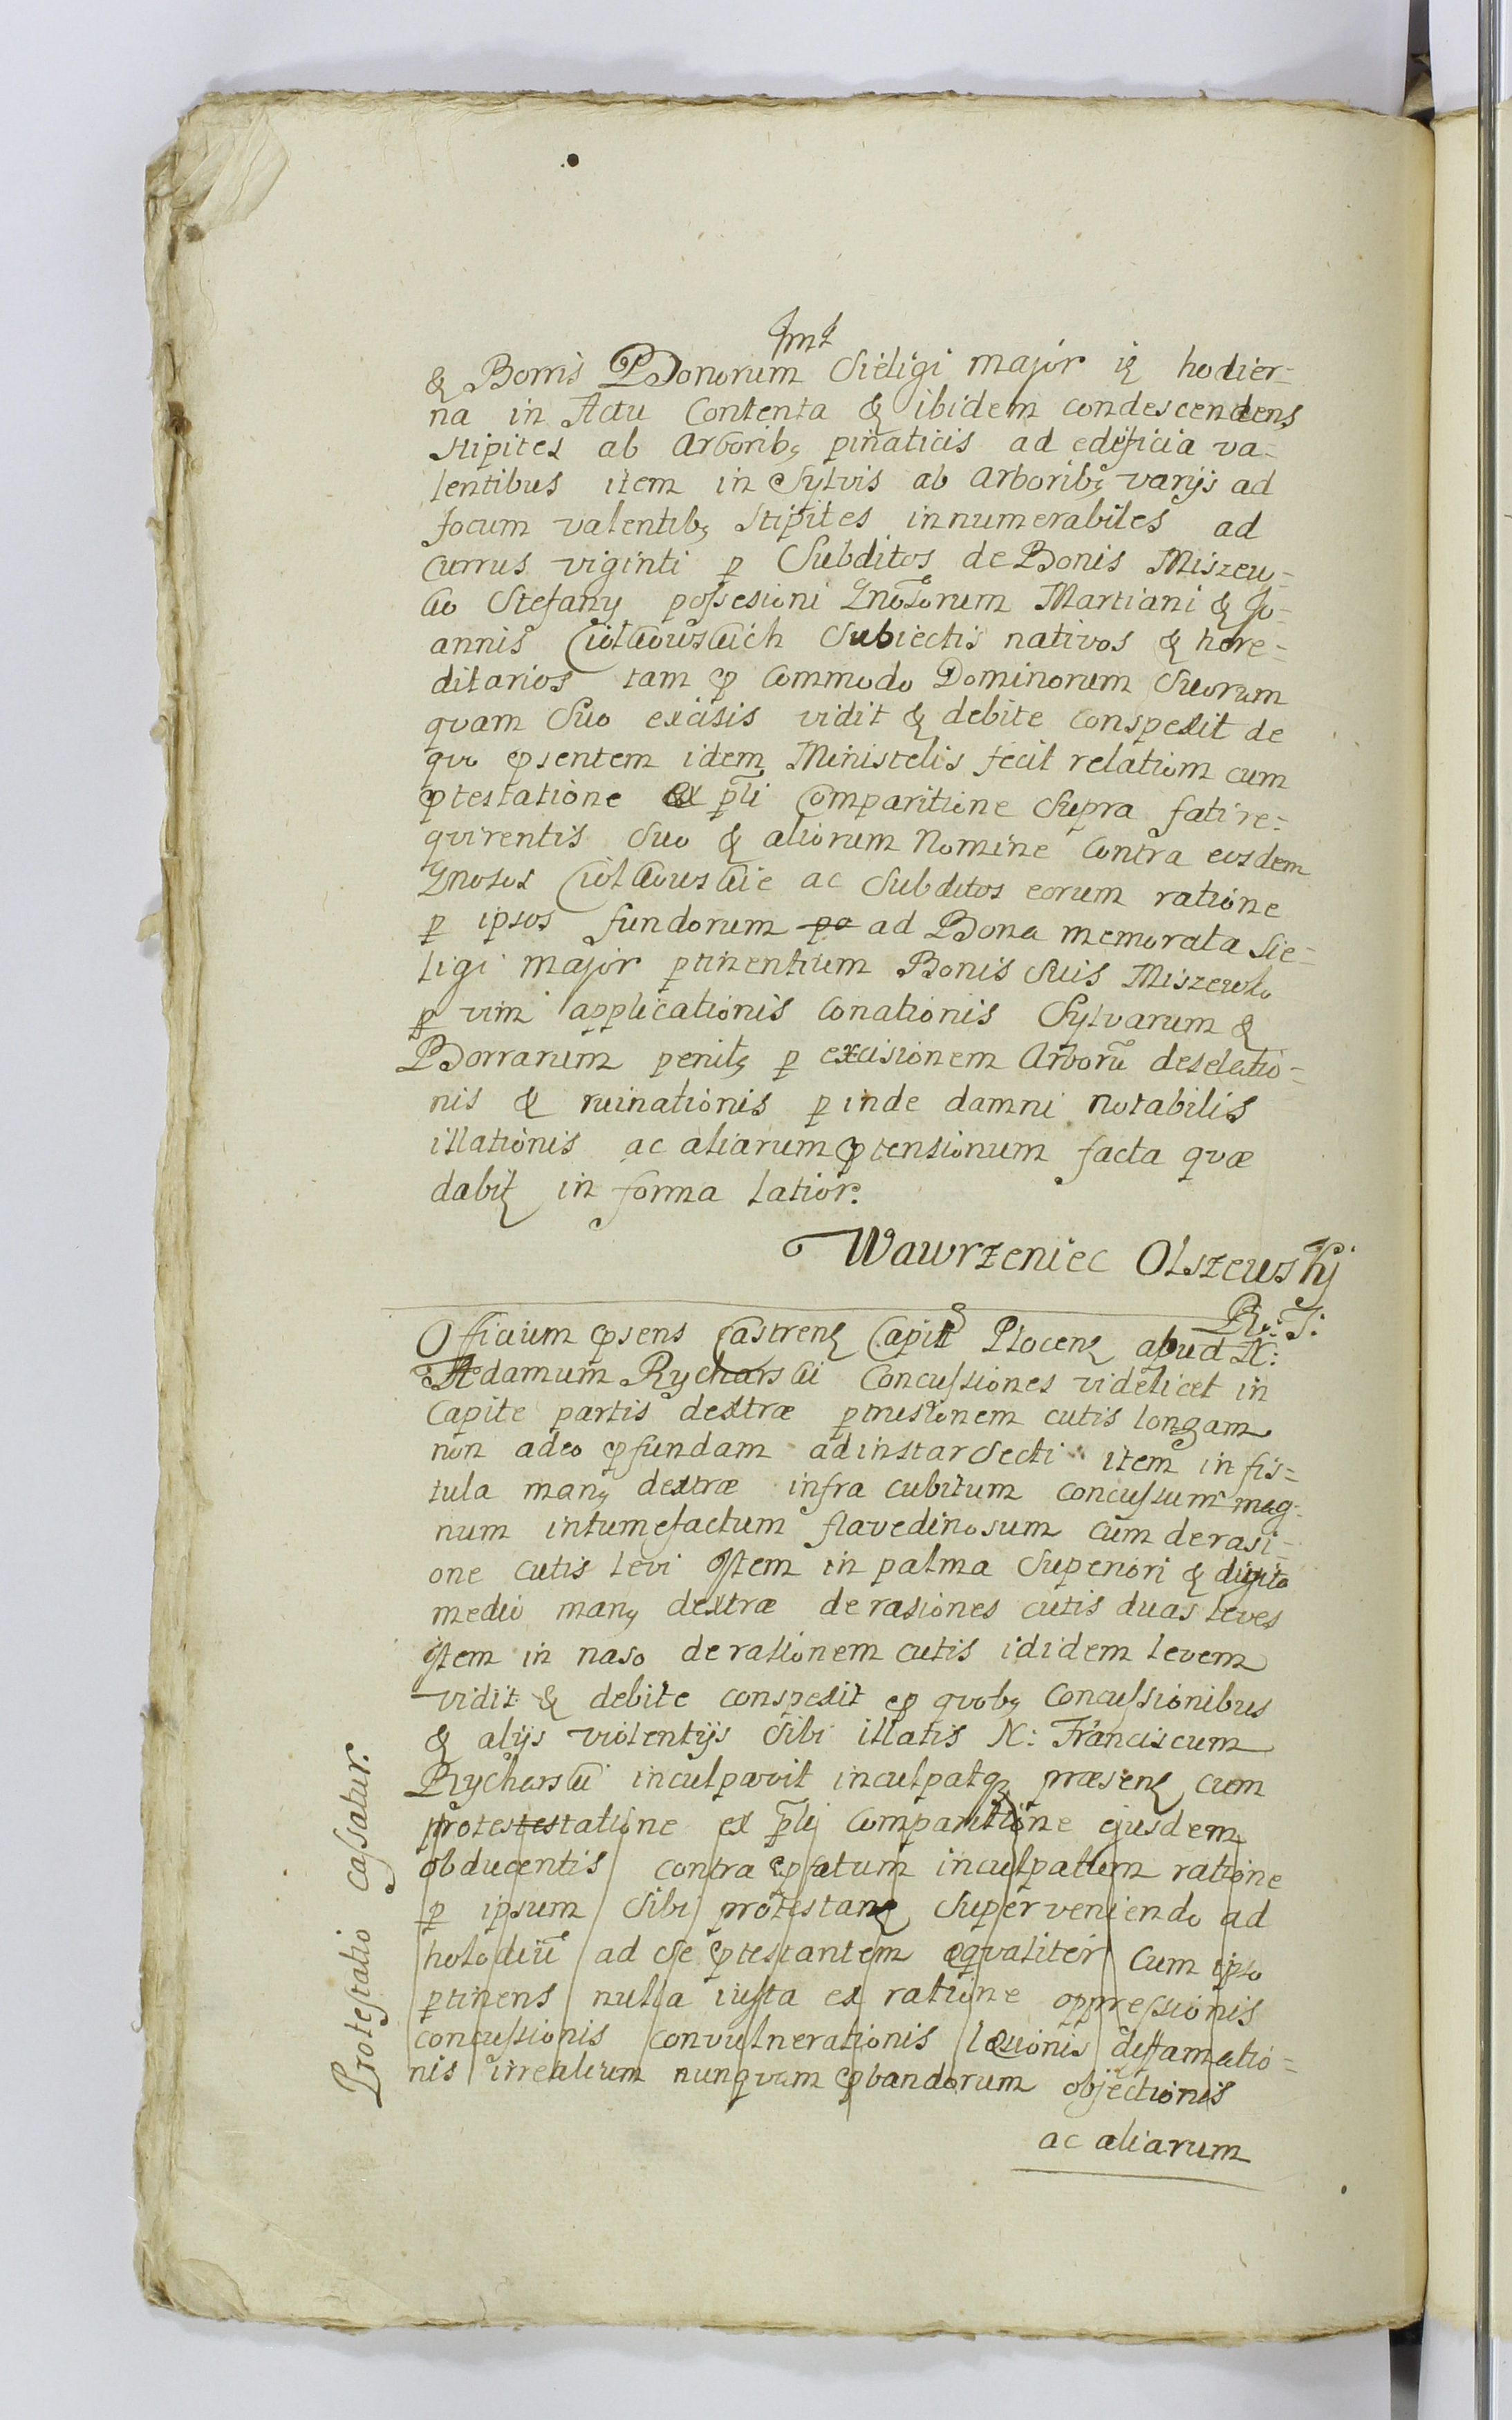 & Borris Bonorum Sieligi major iz hodier=
na in Actu Contenta & ibidem condescendens
stipites ab Arborib9 pinaticis ad edificia va=
lentibus item in Sylvis ab Arborib9 varijs ad
focum valentib9 Stipites innumerabiles ad
currus viginti p Subditos de Bonis Miszew=
ko Stefany possesioni Gnosorum Martiani & Jo=
annis Ciolkowskich Subiectis nativos & here=
ditarios tam p commodo Dominorum Suorum
quam Suo excisis vidit & debite conspexit de
quo psentem idem Ministelis fecit relatiom cum
ptestatione ex pñli Comparitione Supra fati re=
quirentis Suo & aliorum Nomine contra eosdem
Gnosos Ciolkowskie ac Subditos eorum ratione
p ipsos fundorum ad Bona memorata Sie=
ligi major ptinentium Bonis Suis Miszewko
p vim applicationis conationis Sylvarum &
Borrarum penit9 p excisionem Arborũ deselatio=
nis & ruinationis p inde damni notabilis
illationis ac aliarum ptensionum facta quæ
dabit in forma latior:
Wawrzeniec Olszewskj
R: T:
Officium psens Castren Capit Plocen apud N:
Adamum Rycharski Concussiones videlicet in
Capite partis dextræ ptrusionem cutis longam
non adeo pfundam adinstar Secti item in fis=
tula man9 dextræ infra cubitum concussum mag=
num intumefactum flavedinosum cum derasi=
one cutis levi Item in palma Superiori & digito
medio man9 dextræ derasiones cutis duas leves
Item in naso derasionem cutis ididem levem
vidit & debite conspexit p quob9 Concussionibus
& alijs violentijs Sibi illatis N: Franciscum
Rycharski inculpavit inculpatq præsen cum
protestestatione ex pñlj Comparitione ejusdem
obducentis contra pfatum inculpatum ratione
p ipsum Sibi protestan Superveniendo ad
holodiũ ad Se ptestantem eqvaliter cum ipso
ptinens nulla iusta ex ratione oppressionis
concussionis convulnerationis læsionis diffamatio=
nis irrealium nunquam pbandorum objectionis
ac aliarum
Protestatio cassatur.